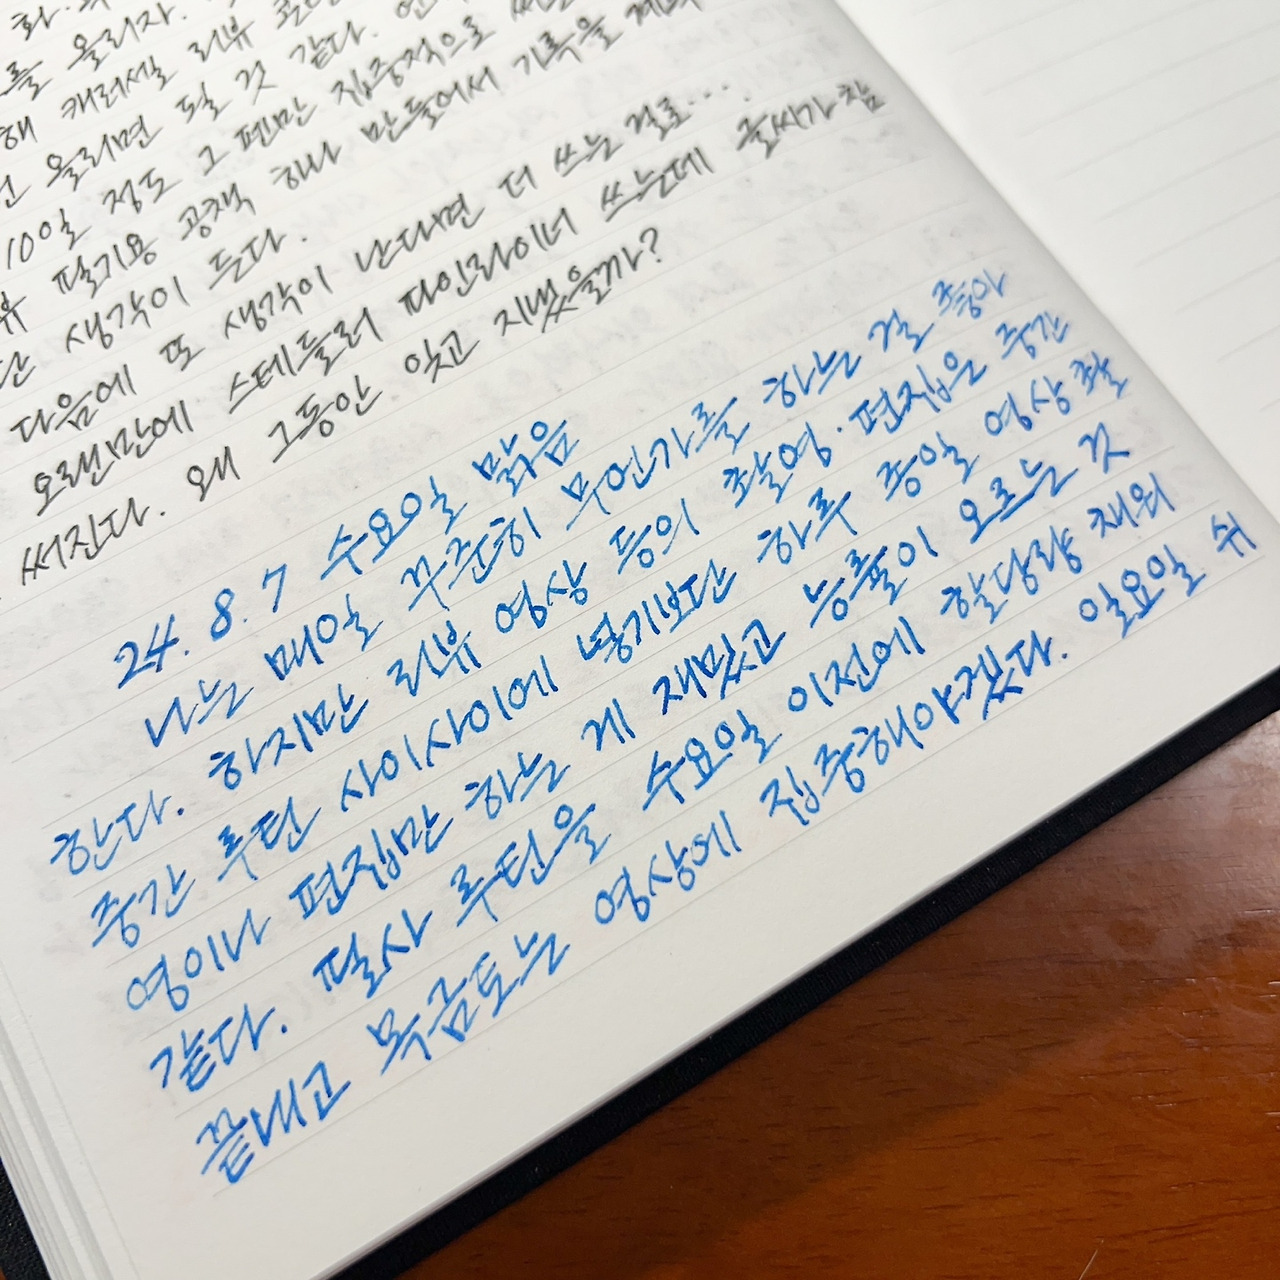 화·
를 올리자.
해 캐러셀 리뷰
올리면 될 것 같다.
10일 정도 그 펜만 집중적으로
뷰 필기용 공책 하나 만들어서 기록을
단 생각이 든다.
다음에 또 생각이 난다면 더 쓰는 걸로...
오랜만에 스테들러 파인라이너 쓰는데 글씨가 참
써진다. 왜 그동안 잊고 지냈을까?
24. 8. 7 수요일 맑음
나는 매일 꾸준히 무언가를 하는 걸 좋아
한다. 하지만 리뷰 영상 등의 촬영·편집을 중간
중간 루틴 사이사이에 넣기보단 하루 종일 영상 촬
영이나 편집만 하는 게 재밌고 능률이 오르는 것
같다. 필사 루틴을 수요일 이전에 할당량 채워
끝내고 목금토는 영상에 집중해야겠다. 일요일 쉬